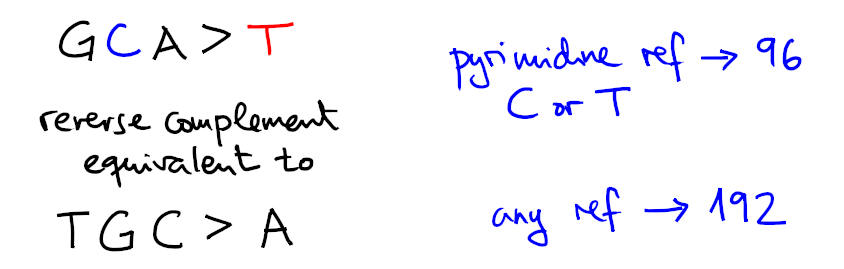 GCA > T
reverse complement
equivalent to
TGC > A
pyrimidine ref → 96
C or T
any ref → 192